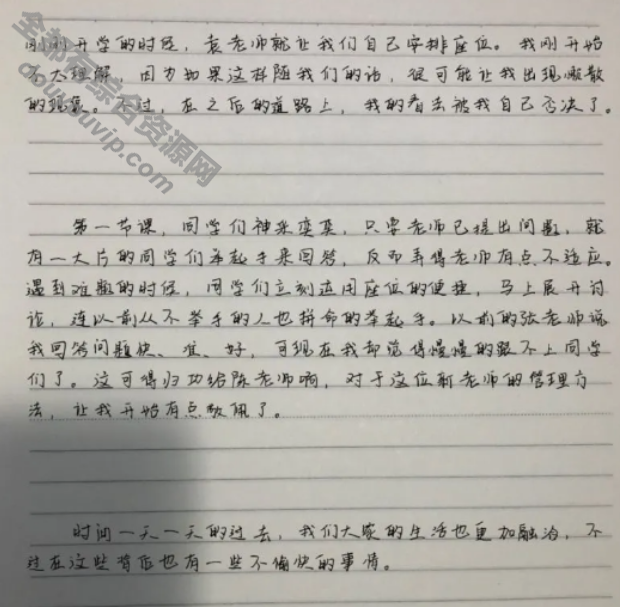 刚刚开学的时候，袁老师就让我们自己安排座位。我刚开始
不太理解，因为如果这样随我们的话，很可能让我出现懒散
的现象。不过，在之后的道路上，我的看法被我自己否决了。
第一节课，同学们神采奕奕，只要老师已提出问题，就
有一大片的同学们举起手来回答，反而弄得老师有点不适应。
遇到难题的时候，同学们立刻运用座位的便捷，马上展开讨
论，连以前从不举手的人也拼命的举起手。以前的张老师说
我回答问题快、准、好，可现在我却觉得慢慢的跟不上同学
们了。这可得归功给陈老师啊，对于这位新老师的管理方
法，让我开始有点敬佩了。
时间一天一天的过去，我们大家的生活也更加融洽，不
过在这些背后也有一些不愉快的事情。
全都有综合资源网
douyouvip.com